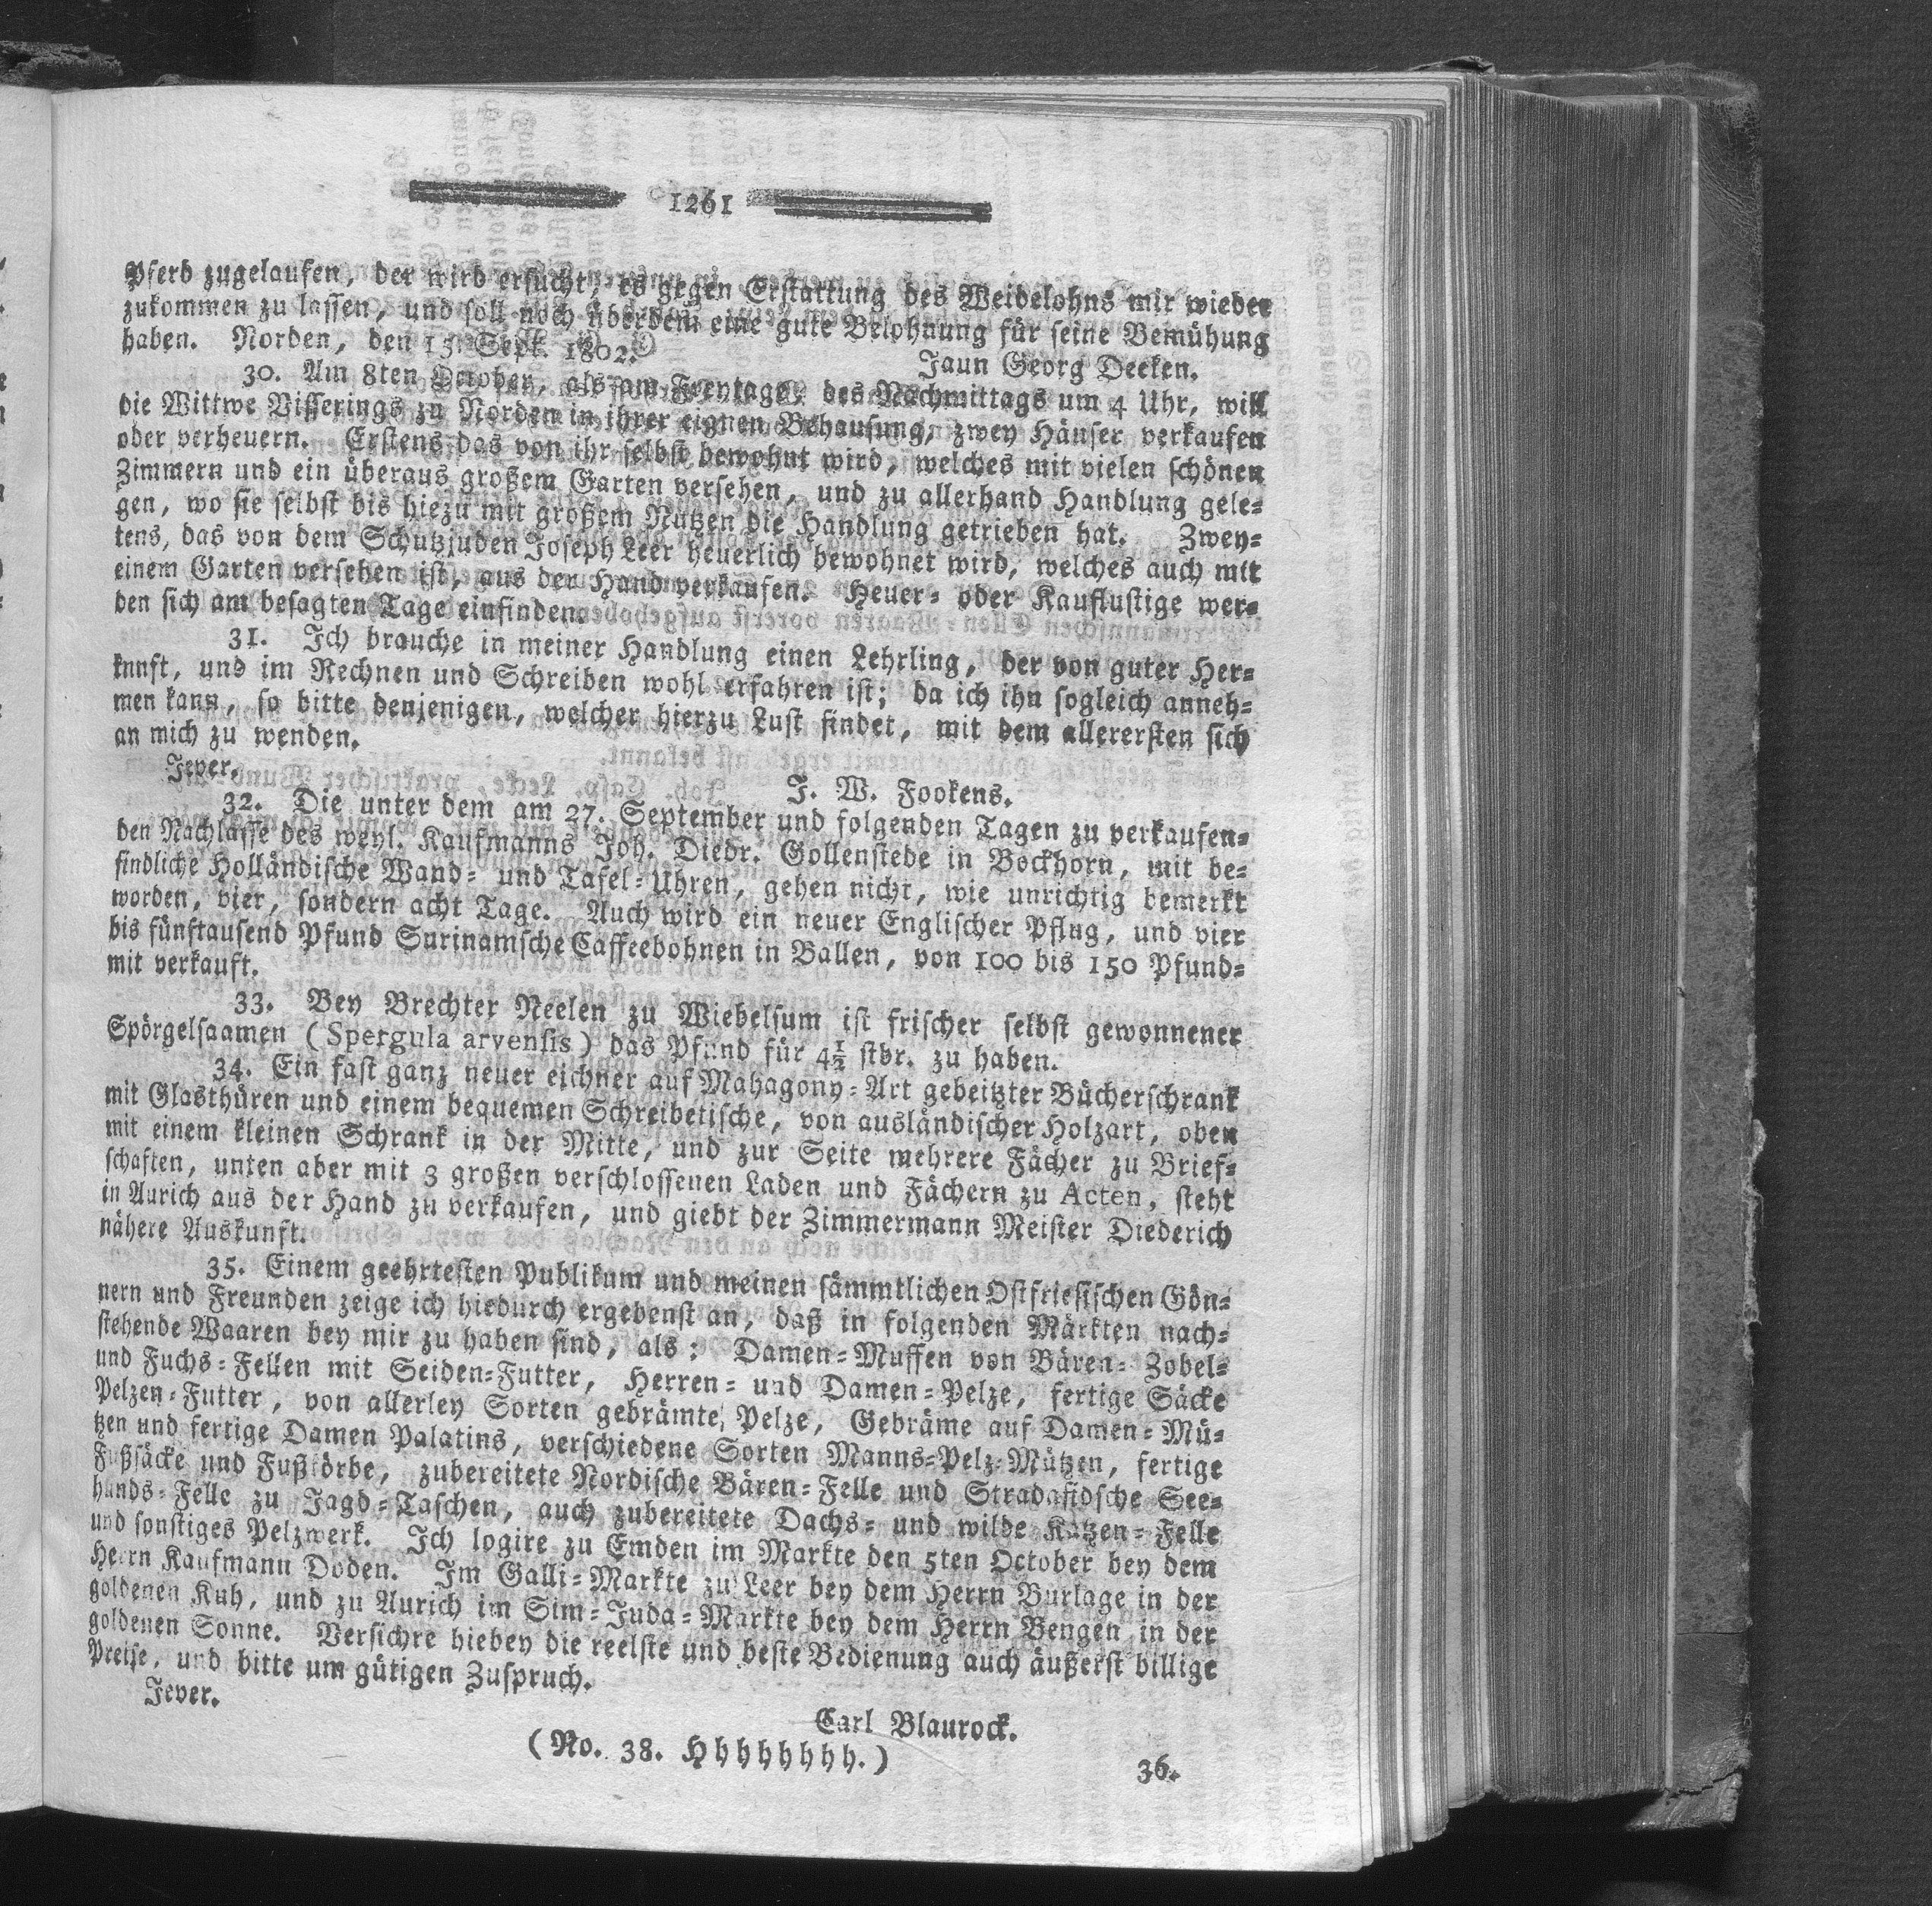 1261
Pferd zugelaufen, der wird ersucht, es gegen Erstattung des Weidelohns mir wieder
zukommen zu lassen, und soll noch überdem eine gute Belohnung für seine Bemühung
haben. Norden, den 15 Sept. 1802. Jaun Georg Deeken.
30. Am 8ten October, als am Freytage, des Nachmittags um 4 Uhr, will
die Wittwe Visserings zu Norden in ihrer eignen Behausung, zwey Häuser verkaufen
oder verheuern. Erstens das von ihr selbst bewohnt wird, welches mit vielen schönen
Zimmern und ein überaus großem Garten versehen, und zu allerhand Handlung gele-
gen, wo sie selbst bis hiezu mit großem Nutzen die Handlung getrieben hat. Zwey-
tens, das von dem Schutzjuden Joseph Leer heuerlich bewohnet wird, welches auch mit
einem Garten versehen ist, aus der Hand verkaufen. Heuer- oder Kauflustige wer-
den sich am besagten Tage einfinden.
31. Ich brauche in meiner Handlung einen Lehrling, der von guter Her-
kunft, und im Rechnen und Schreiben wohl erfahren ist; da ich ihn sogleich anneh-
men kann, so bitte denjenigen, welcher hierzu Lust findet, mit dem allerersten sich
an mich zu wenden.
Jever. J. W. Fookens.
32. Die unter dem am 27. September und folgenden Tagen zu verkaufen-
den Nachlasse des weyl. Kaufmanns Joh. Diedr. Gollenstede in Bockhorn, mit be-
findliche Holländische Wand- und Tafel-Uhren, gehen nicht, wie unrichtig bemerkt
worden, vier, sondern acht Tage. Auch wird ein neuer Englischer Pflug, und vier
bis fünftausend Pfund Surinamsche Caffeebohnen in Ballen, von 100 bis 150 Pfund-
mit verkauft.
33. Bey Brechter Neelen zu Wiebelsum ist frischer selbst gewonnener
Spörgelsaamen (Spergula arvensis) das Pfund für 4½ stbr. zu haben.
34. Ein fast ganz neuer eichner auf Mahagony-Art gebeitzter Bücherschrank
mit Glasthüren und einem bequemen Schreibetische, von ausländischer Holzart, oben
mit einem kleinen Schrank in der Mitte, und zur Seite mehrere Fächer zu Brief-
schaften, unten aber mit 3 großen verschlossenen Laden und Fächern zu Acten, steht
in Aurich aus der Hand zu verkaufen, und giebt der Zimmermann Meister Diederich
nähere Auskunft.
35. Einem geehrtesten Publikum und meinen sämmtlichen Ostfriesischen Gön-
nern und Freunden zeige ich hiedurch ergebenst an, daß in folgenden Märkten nach-
stehende Waaren bey mir zu haben sind, als: Damen-Muffen von Bären- Zobel-
und Fuchs-Fellen mit Seiden-Futter, Herren- und Damen-Pelze, fertige Säcke
Pelzen-Futter, von allerley Sorten gebrämte, Pelze, Gebräme auf Damen-Mü-
tzen und fertige Damen Palatins, verschiedene Sorten Manns-Pelz-Mützen, fertige
Fußsäcke und Fußkörbe, zubereitete Nordische Bären-Felle und Stradafidsche See-
hunds-Felle zu Jagd-Taschen, auch zubereitete Dachs- und wilde Katzen-Felle
und sonstiges Pelzwerk. Ich logire zu Emden im Markte den 5ten October bey dem
Herrn Kaufmann Doden. Im Galli-Markte zu Leer bey dem Herrn Burlage in der
goldenen Kuh, und zu Aurich im Sim-Juda-Markte bey dem Herrn Bengen in der
goldenen Sonne. Versichre hiebey die reelste und beste Bedienung auch äußerst billige
Preise, und bitte um gütigen Zuspruch.
Jever. Carl Blaurock.
(No. 38. Hhhhhhhh.) 36.